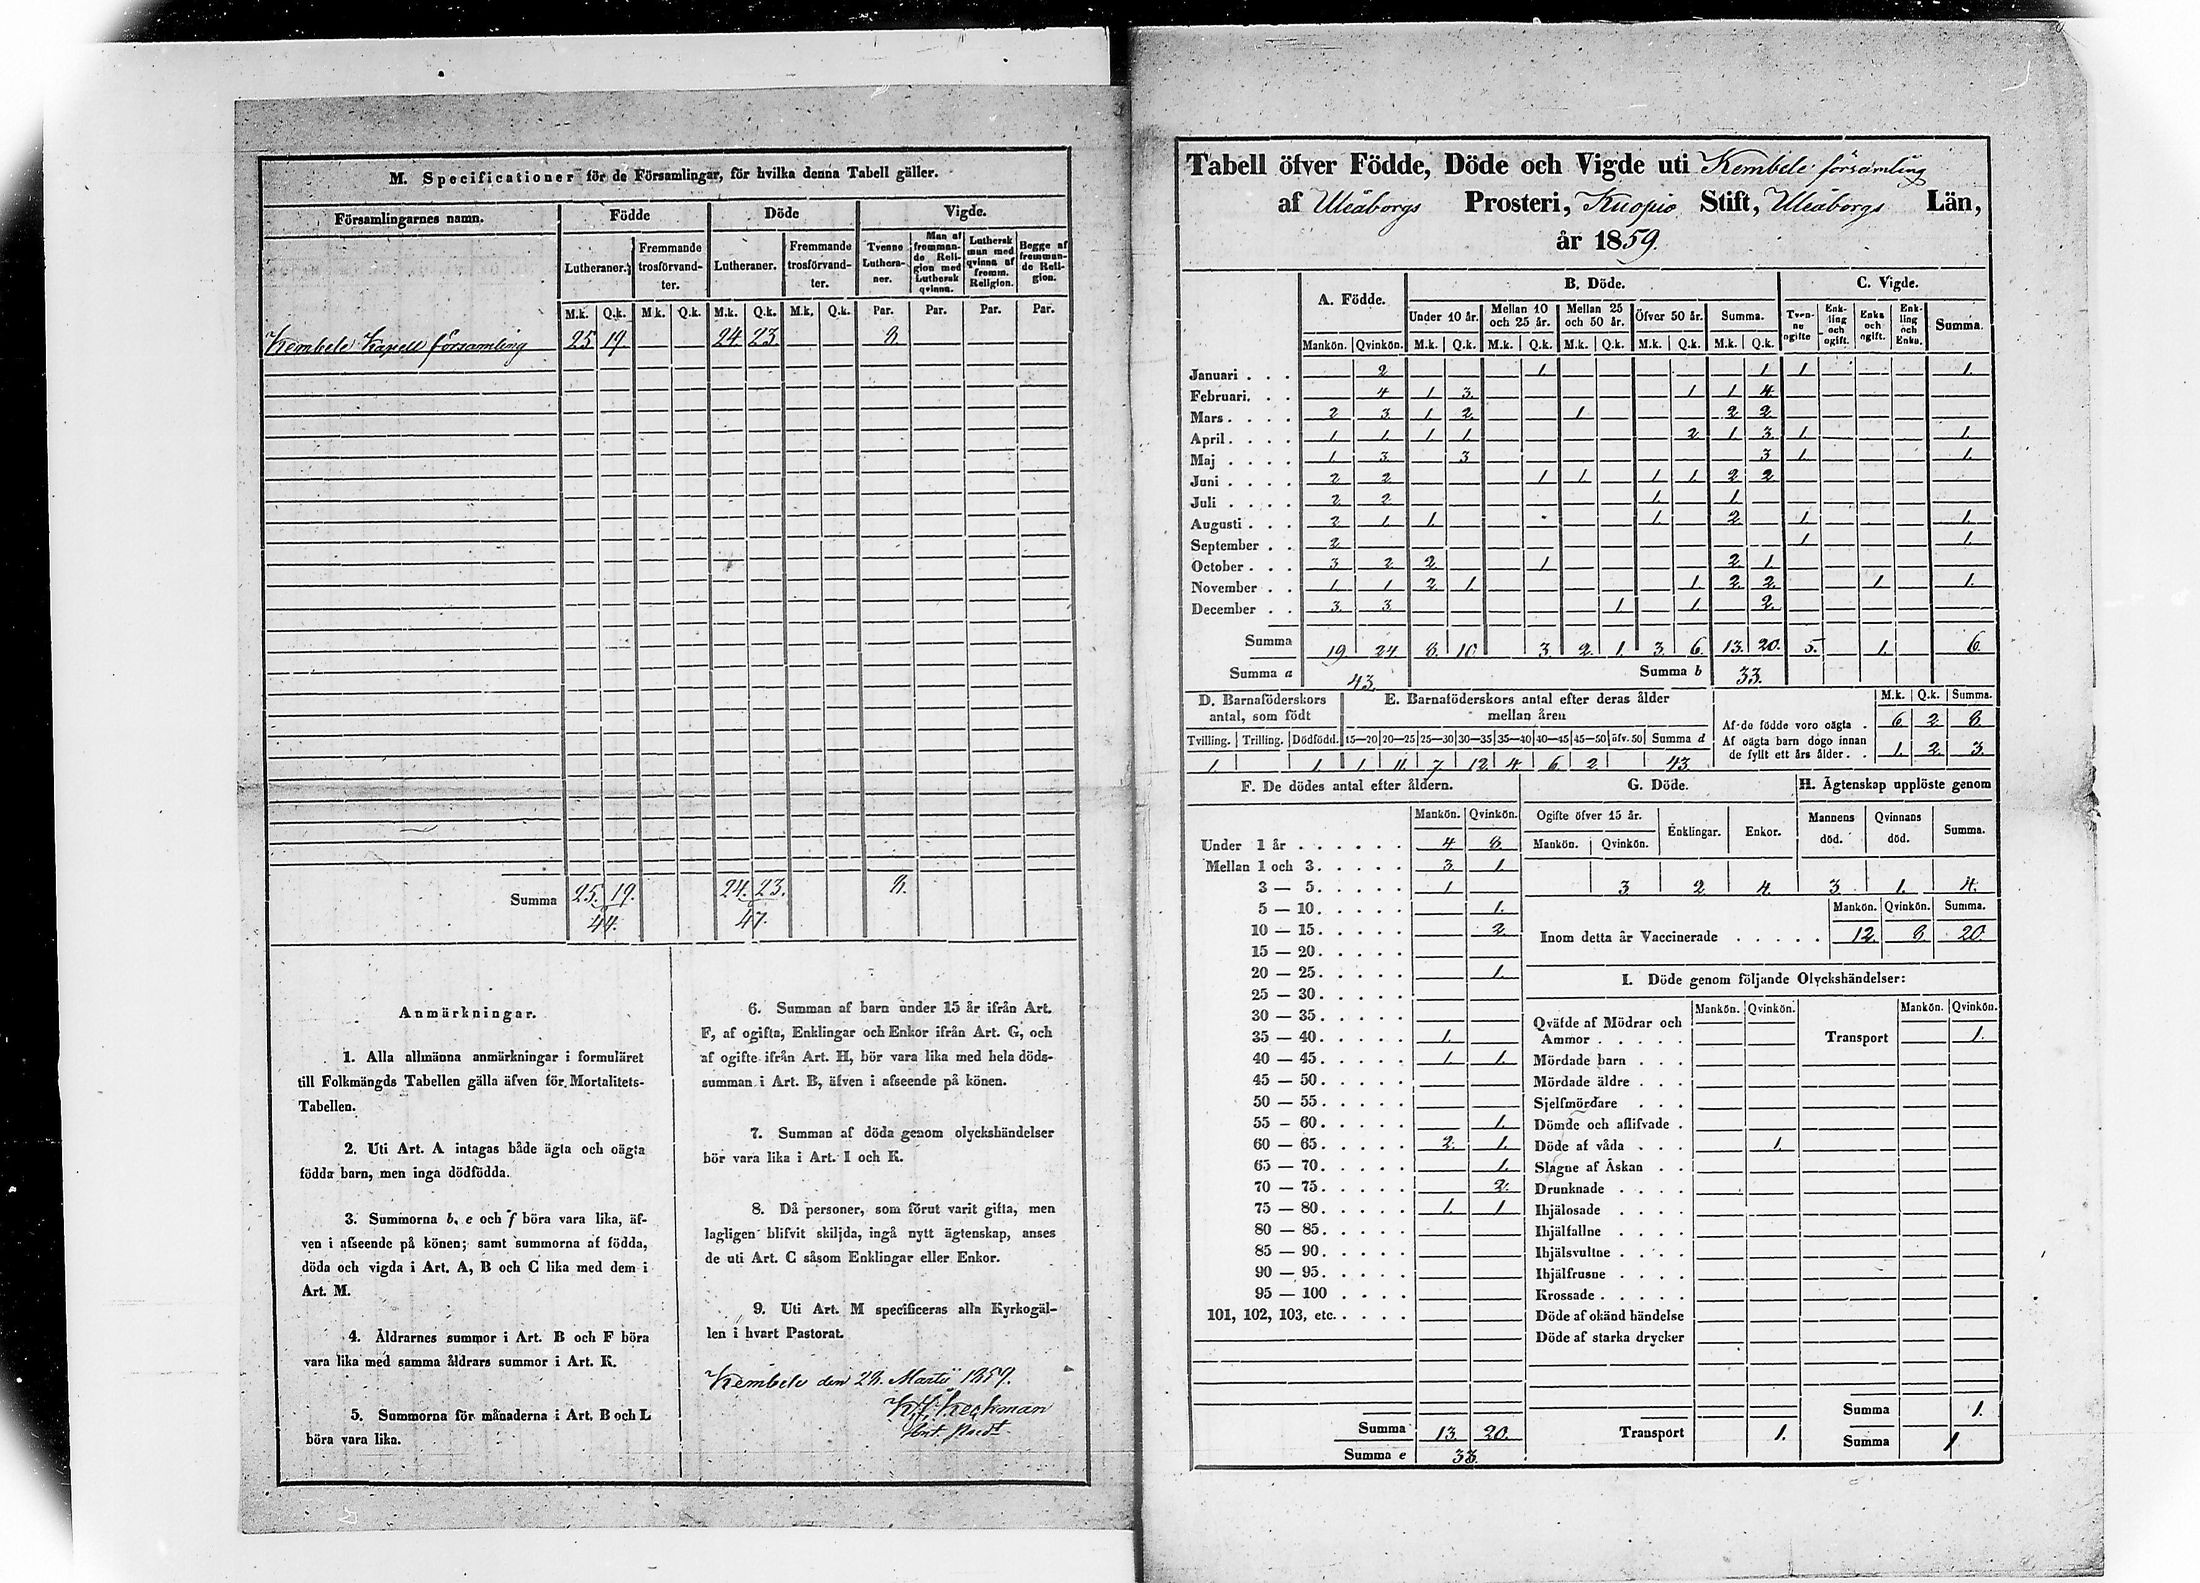 M. Specificationer för de Församlingar, för hvilka denna Tabell gäller.
Församlingarnes namn. Födde Döde Vigde.
Lutheraner. Fremmande trosförvandter. Lutheraner. Fremmande trosförvandter. Tvenne Lutheraner. Man af fremmande Religion med Luthersk qvinna. Luthersk man med qvinna af fremm. Religion. Begge af fremmande Religion.
M.k. Q.k. M.k. Q.k. M.k. Q.k. M.k. Q.k. Par. Par. Par. Par.
Kembele Kapell församling 25 19. 24. 23. 8.
Summa 25. 19. 24. 23. 8.
44. 47.
Anmärkningar.
1. Alla allmänna anmärkningar i formuläret
till Folkmängds Tabellen gälla äfven för Mortalitets-
Tabellen.
2. Uti Art. A intagas både ägta och oägta
födda barn, men inga dödfödda.
3. Summorna b, e och f böra vara lika, äf-
ven i afseende på könen; samt summorna af födda,
döda och vigda i Art. A, B och C lika med dem i
Art. M.
4. Åldrarnes summor i Art. B och F böra
vara lika med samma åldrars summor i Art. K.
5. Summorna för månaderna i Art. B och L
böra vara lika.
6. Summan af barn under 15 år ifrån Art.
F, af ogifta, Enklingar och Enkor ifrån Art. G, och
af ogifte ifrån Art. H, bör vara lika med hela döds-
summan i Art. B, äfven i afseende på könen.
7. Summan af döda genom olyckshändelser
bör vara lika i Art. I och K.
8. Då personer, som förut varit gifta, men
lagligen blifvit skiljda, ingå nytt ägtenskap, anses
de uti Art. C såsom Enklingar eller Enkor.
9. Uti Art. M specificeras alla Kyrkogäl-
len i hvart Pastorat.
Kembele den 28. Martii 1859.
Heckman
Tabell öfver Födde, Döde och Vigde uti Kembele församling
af Uleåborgs Prosteri, Kuopio Stift, Uleåborgs Län,
år 1859.
A. Födde. B. Döde. C. Vigde.
Under 10 år. Mellan 10 och 25 år. Mellan 25 och 50 år. Öfver 50 år. Summa. Tvenne ogifte Enkling och ogift. Enka och ogift. Enkling och Enka. Summa.
Mankön. Qvinkön. M.k. Q.k. M.k. Q.k. M.k. Q.k. M.k. Q.k. M.k. Q.k.
Januari . . . 2 1. 1. 1. 1.
Februari. . . 4 1 3. 1 1 4.
Mars . . . . 2 3 1 2 1 2 2
April . . . . 1 1 1 1 2 1 3 1 1.
Maj . . . . 1 3 3 3 1 1.
Juni . . . . 2 2 1 1 1 1 2 2
Juli . . . . 2 2 1 1.
Augusti . . . 2 1 1. 1. 2 1 1.
September . . 2 1 1.
October . . . 3 2 2 1 2 1
November . . 1 1 2 1. 1 2 2 1. 1.
December . . 3 3 1 1. 2.
Summa 19. 24 8. 10. 3. 2. 1. 3. 6. 13. 20. 5. 1. 6.
Summa a 43. Summa b 33.
D. Barnaföderskors antal, som födt
E. Barnaföderskors antal efter deras ålder mellan åren
M.k. Q.k. Summa.
Af de födde voro oägta . 6. 2. 8.
Af oägta barn dogo innan de fyllt ett års ålder . . 1. 2. 3.
Tvilling. Trilling. Dödfödd. 15—20 20—25 25—30 30—35 35—40 40—45 45—50 öfv. 50 Summa d
1. 1. 1. 11. 7 12. 4. 6. 2. 43
F. De dödes antal efter åldern.
Mankön. Qvinkön.
Under 1 år . . . . . . 4 8.
Mellan 1 och 3. . . . . 3. 1.
3 — 5. . . . . 1
5 — 10. . . . . 1.
10 — 15. . . . . 2
15 — 20. . . . .
20 — 25. . . . . 1.
25 — 30. . . . .
30 — 35. . . . .
35 — 40. . . . . 1.
40 — 45. . . . . 1 1.
45 — 50. . . . .
50 — 55. . . . .
55 — 60. . . . . 1.
60 — 65. . . . . 2. 1.
65 — 70. . . . . 1.
70 — 75. . . . . 2.
75 — 80. . . . . 1. 1
80 — 85. . . . .
85 — 90. . . . .
90 — 95. . . . .
95 — 100 . . . .
101, 102, 103, etc. . . . .
Summa 13. 20.
Summa e 33.
G. Döde.
Ogifte öfver 15 år. Enklingar. Enkor.
Mankön. Qvinkön.
3 2. 4.
H. Ägtenskap upplöste genom
Mannens död. Qvinnans död. Summa.
3. 1. 4.
Mankön. Qvinkön. Summa.
Inom detta år Vaccinerade . . . . . 12. 8. 20.
I. Döde genom följande Olyckshändelser:
Mankön. Qvinkön. Mankön. Qvinkön.
Qväfde af Mödrar och
Ammor . . . . . Transport 1.
Mördade barn . . .
Mördade äldre . . .
Sjelfmördare . . .
Dömde och aflifvade .
Döde af våda . . . 1.
Slagne af Åskan . .
Drunknade . . . .
Ihjälosade . . . .
Ihjälfallne . . . .
Ihjälsvultne . . . .
Ihjälfrusne . . . .
Krossade . . . . .
Döde af okänd händelse
Döde af starka drycker
Summa 1.
Transport 1. Summa 1